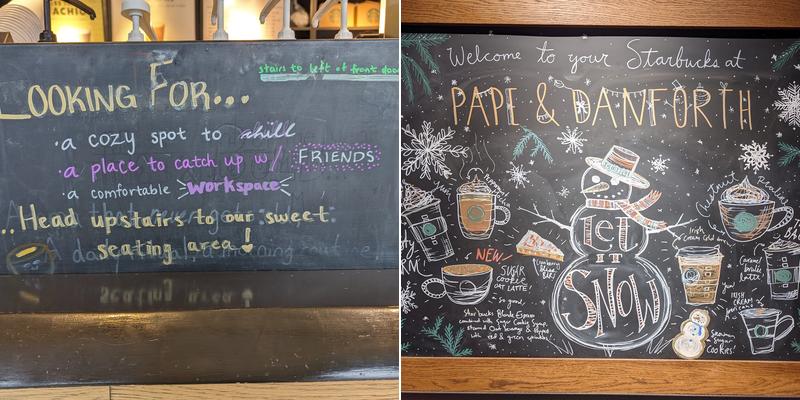 ACHIO
stairs to left of front doo
LOOKING FOR...
·a cozy spot to chill
·a place to catch up w/ FRIENDS
·a comfortable workspace
..Head upstairs to our sweet
seating area!
Welcome to your Starbucks at
PAPE & DANFORTH
Let
IT
SNOW
Chestnut Praline
Irish
Cream Cold
NEW!
SUGAR
COOKIE
OAT LATTE!
Cranberry
Bliss
BAR!
Caramel
brulée
latte!
so good,
Starbucks Blonde Espresso
combined with Sugar Cookie Syrup,
steamed Oat & topped
with red & green sprinkles!
IRISH
CREAM
snowman
sugar
COOKIES!